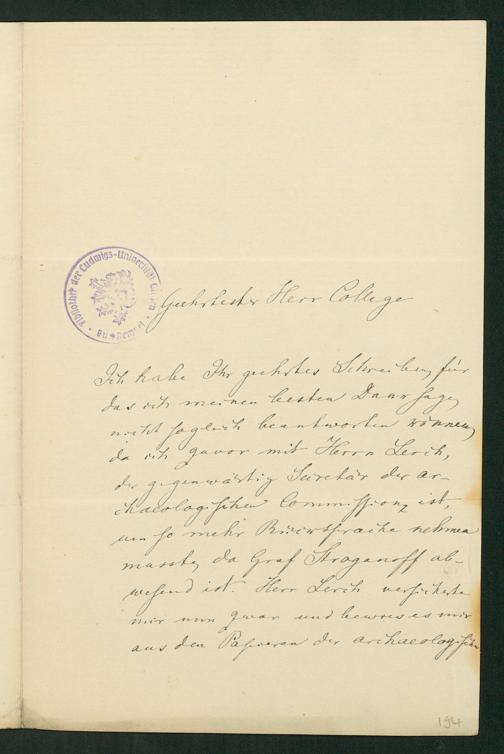 Bibliothek der Ludwigs-Universität Giessen
Geehrtester Herr College
Ich habe Ihr geehrtes Schreiben, für
das ich meinen besten Dank sage,
nicht sogleich beantworten können,
da ich zuvor mit Herrn Lerch,
der gegenwärtig Secretär der ar-
chaeologischen Commission ist,
um so mehr Rücksprache nehmen
musste, da Graf Stroganoff ab-
wesend ist. Herr Lerch versicherte
mir nun zwar und bewies es mir
aus den Papieren der archaeologischen
194